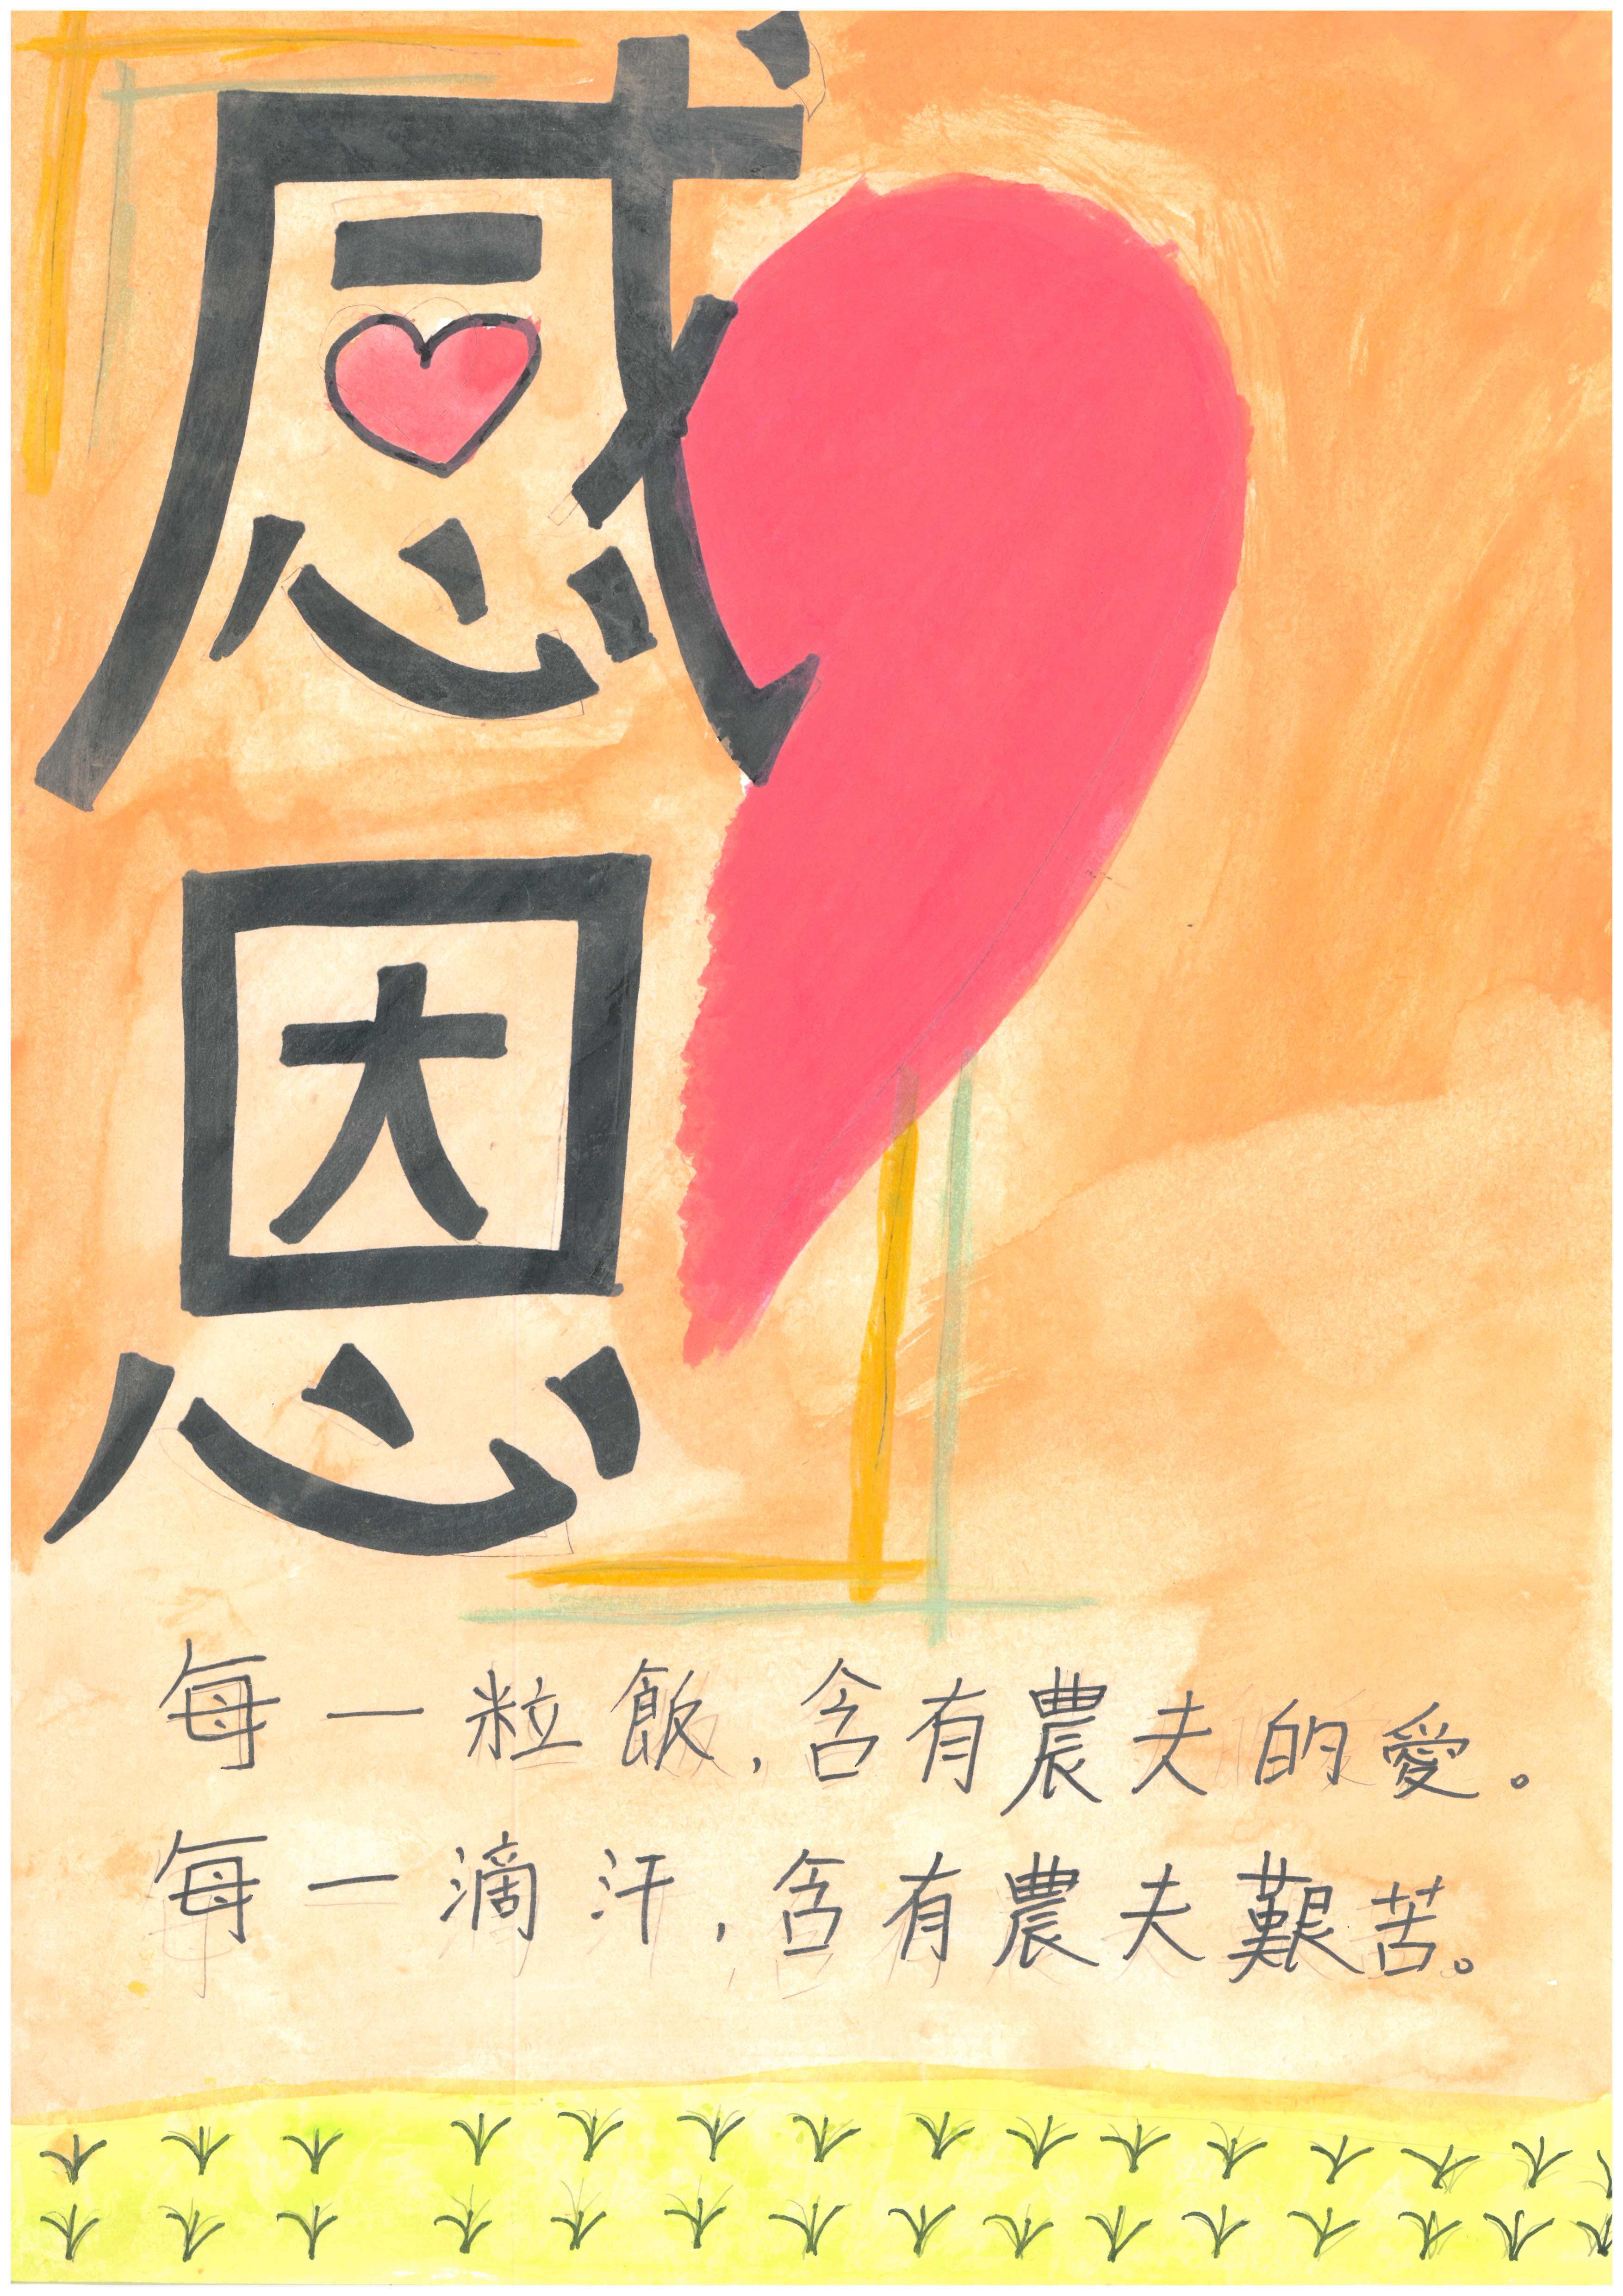 感恩
每一粒飯，含有農夫的愛。
每一滴汗，含有農夫艱苦。